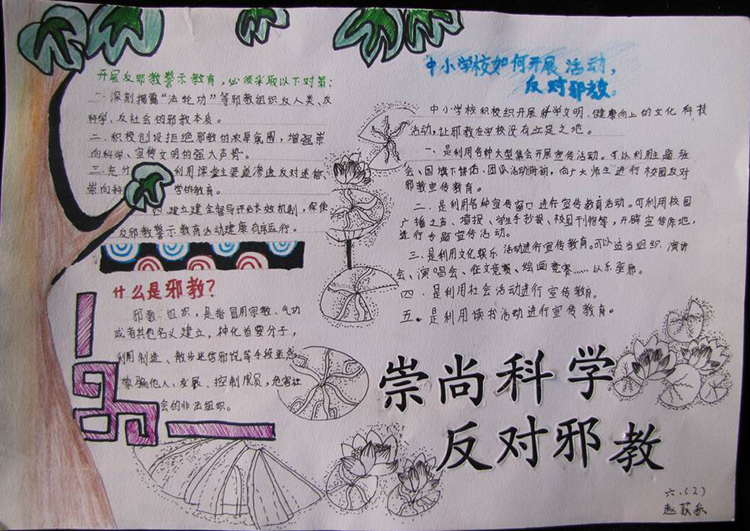 开展反邪教警示教育，必须采取以下对策：
一、深刻揭露“法轮功”等邪教组织反人类、反
科学、反社会的邪教本质。
二、积极创设拒绝邪教的浓厚氛围，增强崇
尚科学、宣传文明的强大声势。
三、充分利用课堂主渠道渗透反对迷信
崇尚科学的教育。
四、建立建全督导评估长效机制，保使
反邪教警示教育活动健康有序运行。
什么是邪教？
邪教组织，是指冒用宗教、气功
或者其他名义建立，神化首要分子，
利用制造、散步迷信邪说等手段
骗他人，发展、控制成员，危害社
会的非法组织。
中小学校如何开展活动，
反对邪教。
中小学校积极组织开展科学文明，健康向上的文化科技
活动，让邪教在学校没有立足之地。
一、是利用各种大型集会开展宣传活动。可以利用主题班
会、国旗下讲话、团队活动时间，向广大师生进行校园反对
邪教宣传教育。
二、是利用各种宣传窗口进行宣传教育活动。可利用校园
广播之声、墙报、学生手抄报、校园刊物等，开辟宣传阵地，
进行专题宣传活动。
三、是利用文化娱乐活动进行宣传教育。可以适当组织，演讲
会、演唱会、征文竞赛、绘画竞赛……
四、是利用社会活动进行宣传教育。
五、是利用读书活动进行宣传教育。
崇尚科学
反对邪教
六．(2)
赵